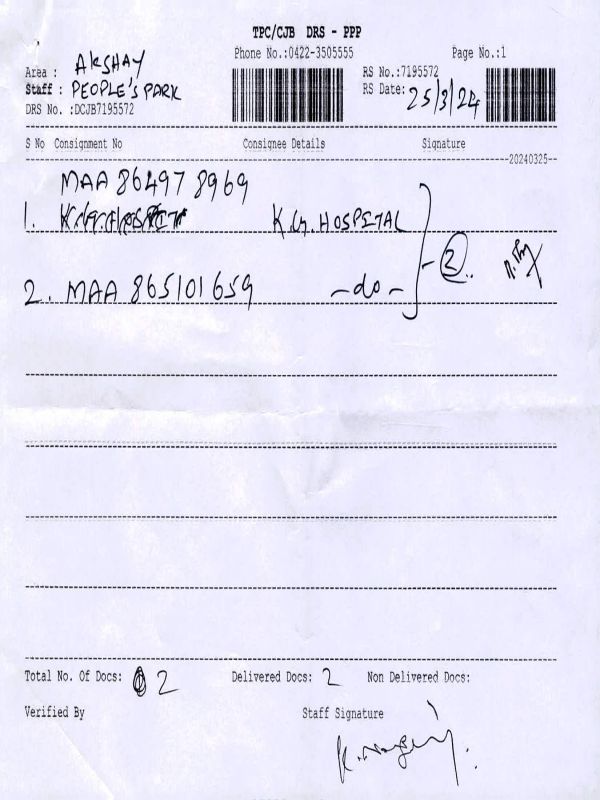 TPC/CJB DRS - PPP
Phone No.:0422-3505555 Page No.:1
Area : AKSHAY RS No.:7195572
Staff : PEOPLE'S PARK RS Date: 25/3/24
DRS No. :DCJB7195572
S No Consignment No Consignee Details Signature
20240325
MAA 864978969
1. K.G. HOSPITAL
2
2. MAA 865101659 - do -
Total No. Of Docs: 2 Delivered Docs: 2 Non Delivered Docs:
Verified By Staff Signature